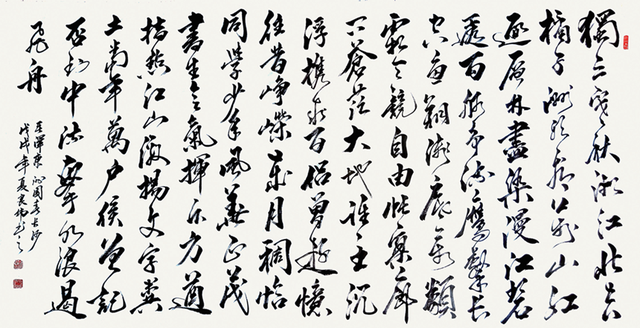 獨立寒秋湘江北去
橘子洲頭看萬山紅
遍層林盡染漫江碧
透百舸爭流鷹擊長
空魚翔淺底萬類
霜天競自由悵寥廓
問蒼茫大地誰主沉
浮攜來百侶曾遊憶
往昔崢嶸歲月稠恰
同學少年風華正茂
書生意氣揮斥方遒
指點江山激揚文字糞
土當年萬戶侯曾記
否到中流擊水浪遏
飛舟
毛澤東沁園春長沙
戊戌年夏